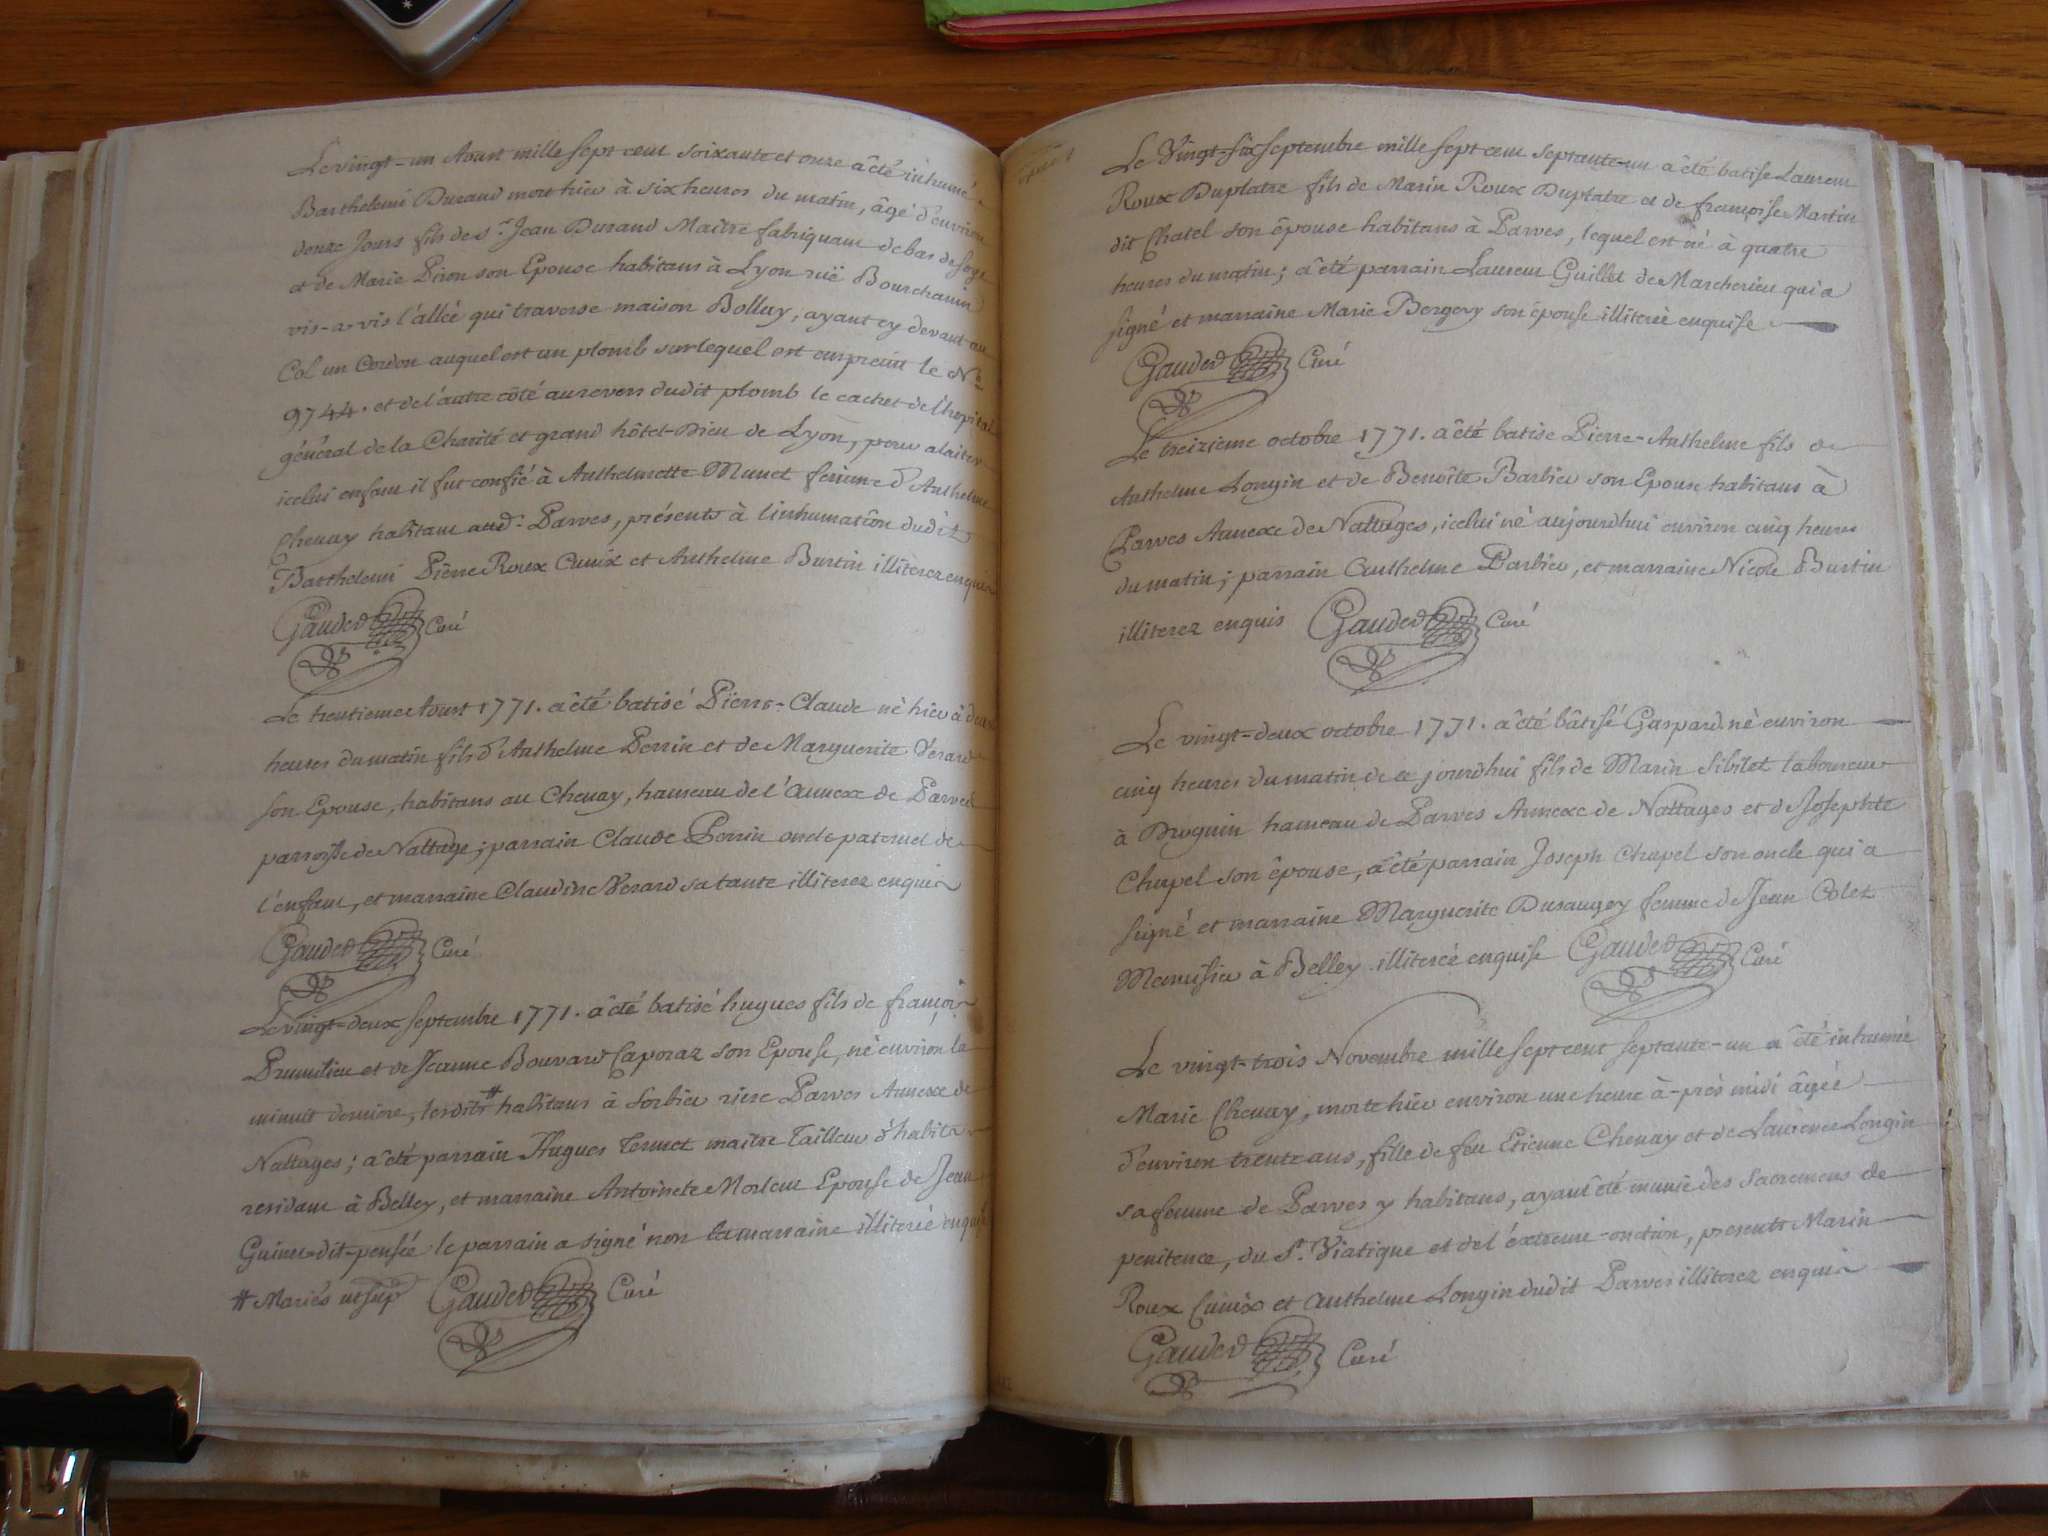 Le vingt-un Aoust mille sept cent soixante et onze a été inhumé
Barthelemi Durand mort hier à six heures du matin, âgé d'environ
douze Jours fils de Sr. Jean Durand Maitre fabriquant de bas de soye
et de Marie Pion son Epouse habitans à Lyon ruë Bourchanin
vis-a-vis l'allée qui traverse maison ayant cy devant au
Col un Cordon auquel est un plomb sur lequel est empreint le No
9744. et de l'autre côté au revers dudit plomb le cachet de l'hopital
général de la Charité et grand hôtel-Dieu de Lyon, pour alaiter
icelui enfant il fut confié à Anthelmette Munet femme d'Anthelme
Chenay habitant aud. Parves, présents à l'inhumation dudit
Barthelemi Pierre Roux Cunix et Anthelme Burtin illiterez enquis
Gauded Curé
Le trentieme Aoust 1771. a été batisé Pierre-Claude né hier à deux
heures du matin fils d'Anthelme Perrin et de Marguerite Verard
son Epouse, habitans au Chenay, hameau de l'Annexe de Parves
parroisse de Nattage; parrain Claude Perrin oncle paternel de
l'enfant, et marraine Claudine Verard sa tante illiterez enquis
Gauded Curé
Le vingt-deux septembre 1771. a été batisé hugues fils de françois
Prumilieu et de Jeanne Bouvard Caporaz son Epouse, né environ la
minuit derniere, lesdits # habitans à Sorbier riere Parves Annexe de
Nattages; a été parrain Hugues Tenuet maitre Tailleur d'habits
residant à Belley, et marraine Antoinete Morleur Epouse de Jean
Guinet-dit-pensée le parrain a signé non la marraine illiterée enquise
# Mariés ut sup. Gauded Curé
Le Vingt-six septembre mille sept cent septante-un a été batisé Laurent
Roux Duplatre fils de Marin Roux Duplatre et de françoise Martin
dit Chatel son épouse habitans à Parves, lequel est né à quatre
heures du matin; a été parrain Laurent Guillet de Marcherieu qui a
signé et marraine Marie Bergery son épouse illiterée enquise
Gauded Curé
Le treizieme octobre 1771. a été batisé Pierre-Anthelme fils de
Anthelme Longin et de Benoîte Barbier son Epouse habitans à
Parves Annexe de Nattages, icelui né aujourdhui environ cinq heures
du matin; parrain Anthelme Barbier, et marraine Nicole Burtin
illiterez enquis Gauded Curé
Le vingt-deux octobre 1771. a été bâtisé Gaspard né environ
cinq heures du matin de ce jourdhui fils de Marin Sibilet laboureur
à Druguin hameau de Parves Annexe de Nattages et de Josephte
Chapel son épouse, a été parrain Joseph Chapel son oncle qui a
signé et marraine Marguerite Durangey femme de Jean Colet
Menuisier à Belley illiterée enquise Gauded Curé
Le vingt-trois Novembre mille sept cent septante-un a été inhumée
Marie Chenay, morte hier environ une heure à-près midi âgée
d'environ trente ans, fille de feu Etienne Chenay et de Laurence Longin
sa femme de Parves y habitans, ayant été munie des Sacremens de
penitence, du St. Viatique et de l'éxtreme-onction, presents Marin
Roux Cunix et Anthelme Longin dudit Parves illiterez enquis
Gauded Curé